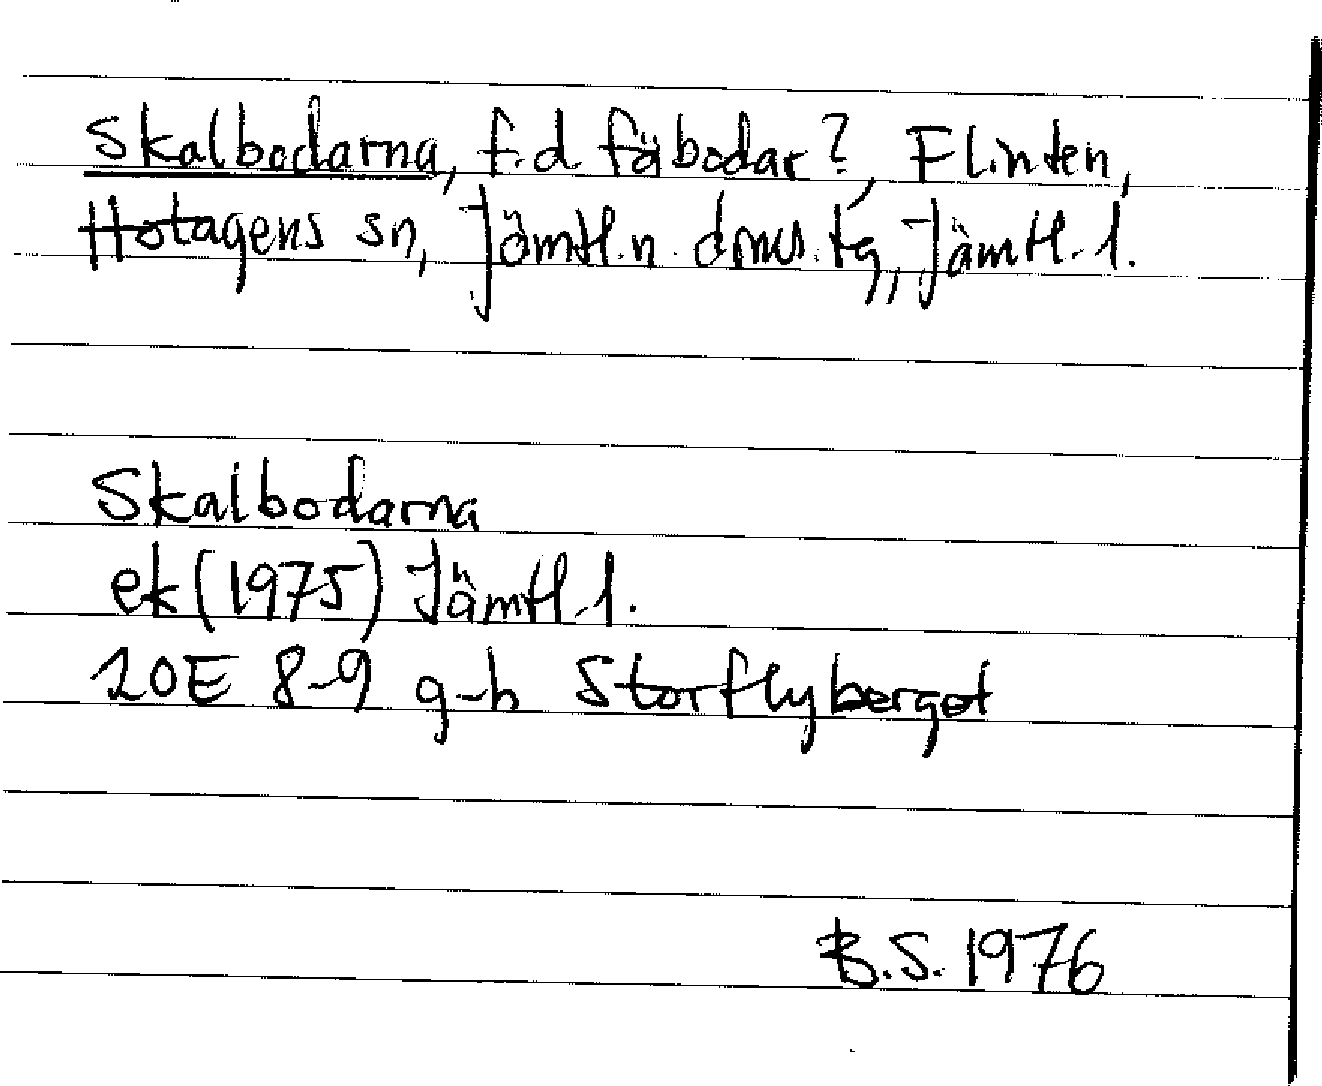 Skalbodarna, f.d. fäbodar?, Flinten,
Hotagens sn, Jämtl.n. dms. tg, Jämtl. l.
Skalbodarna
ek (1975) Jämtl. l.
20E 8-9 g-h Storflyberget
B.S. 1976